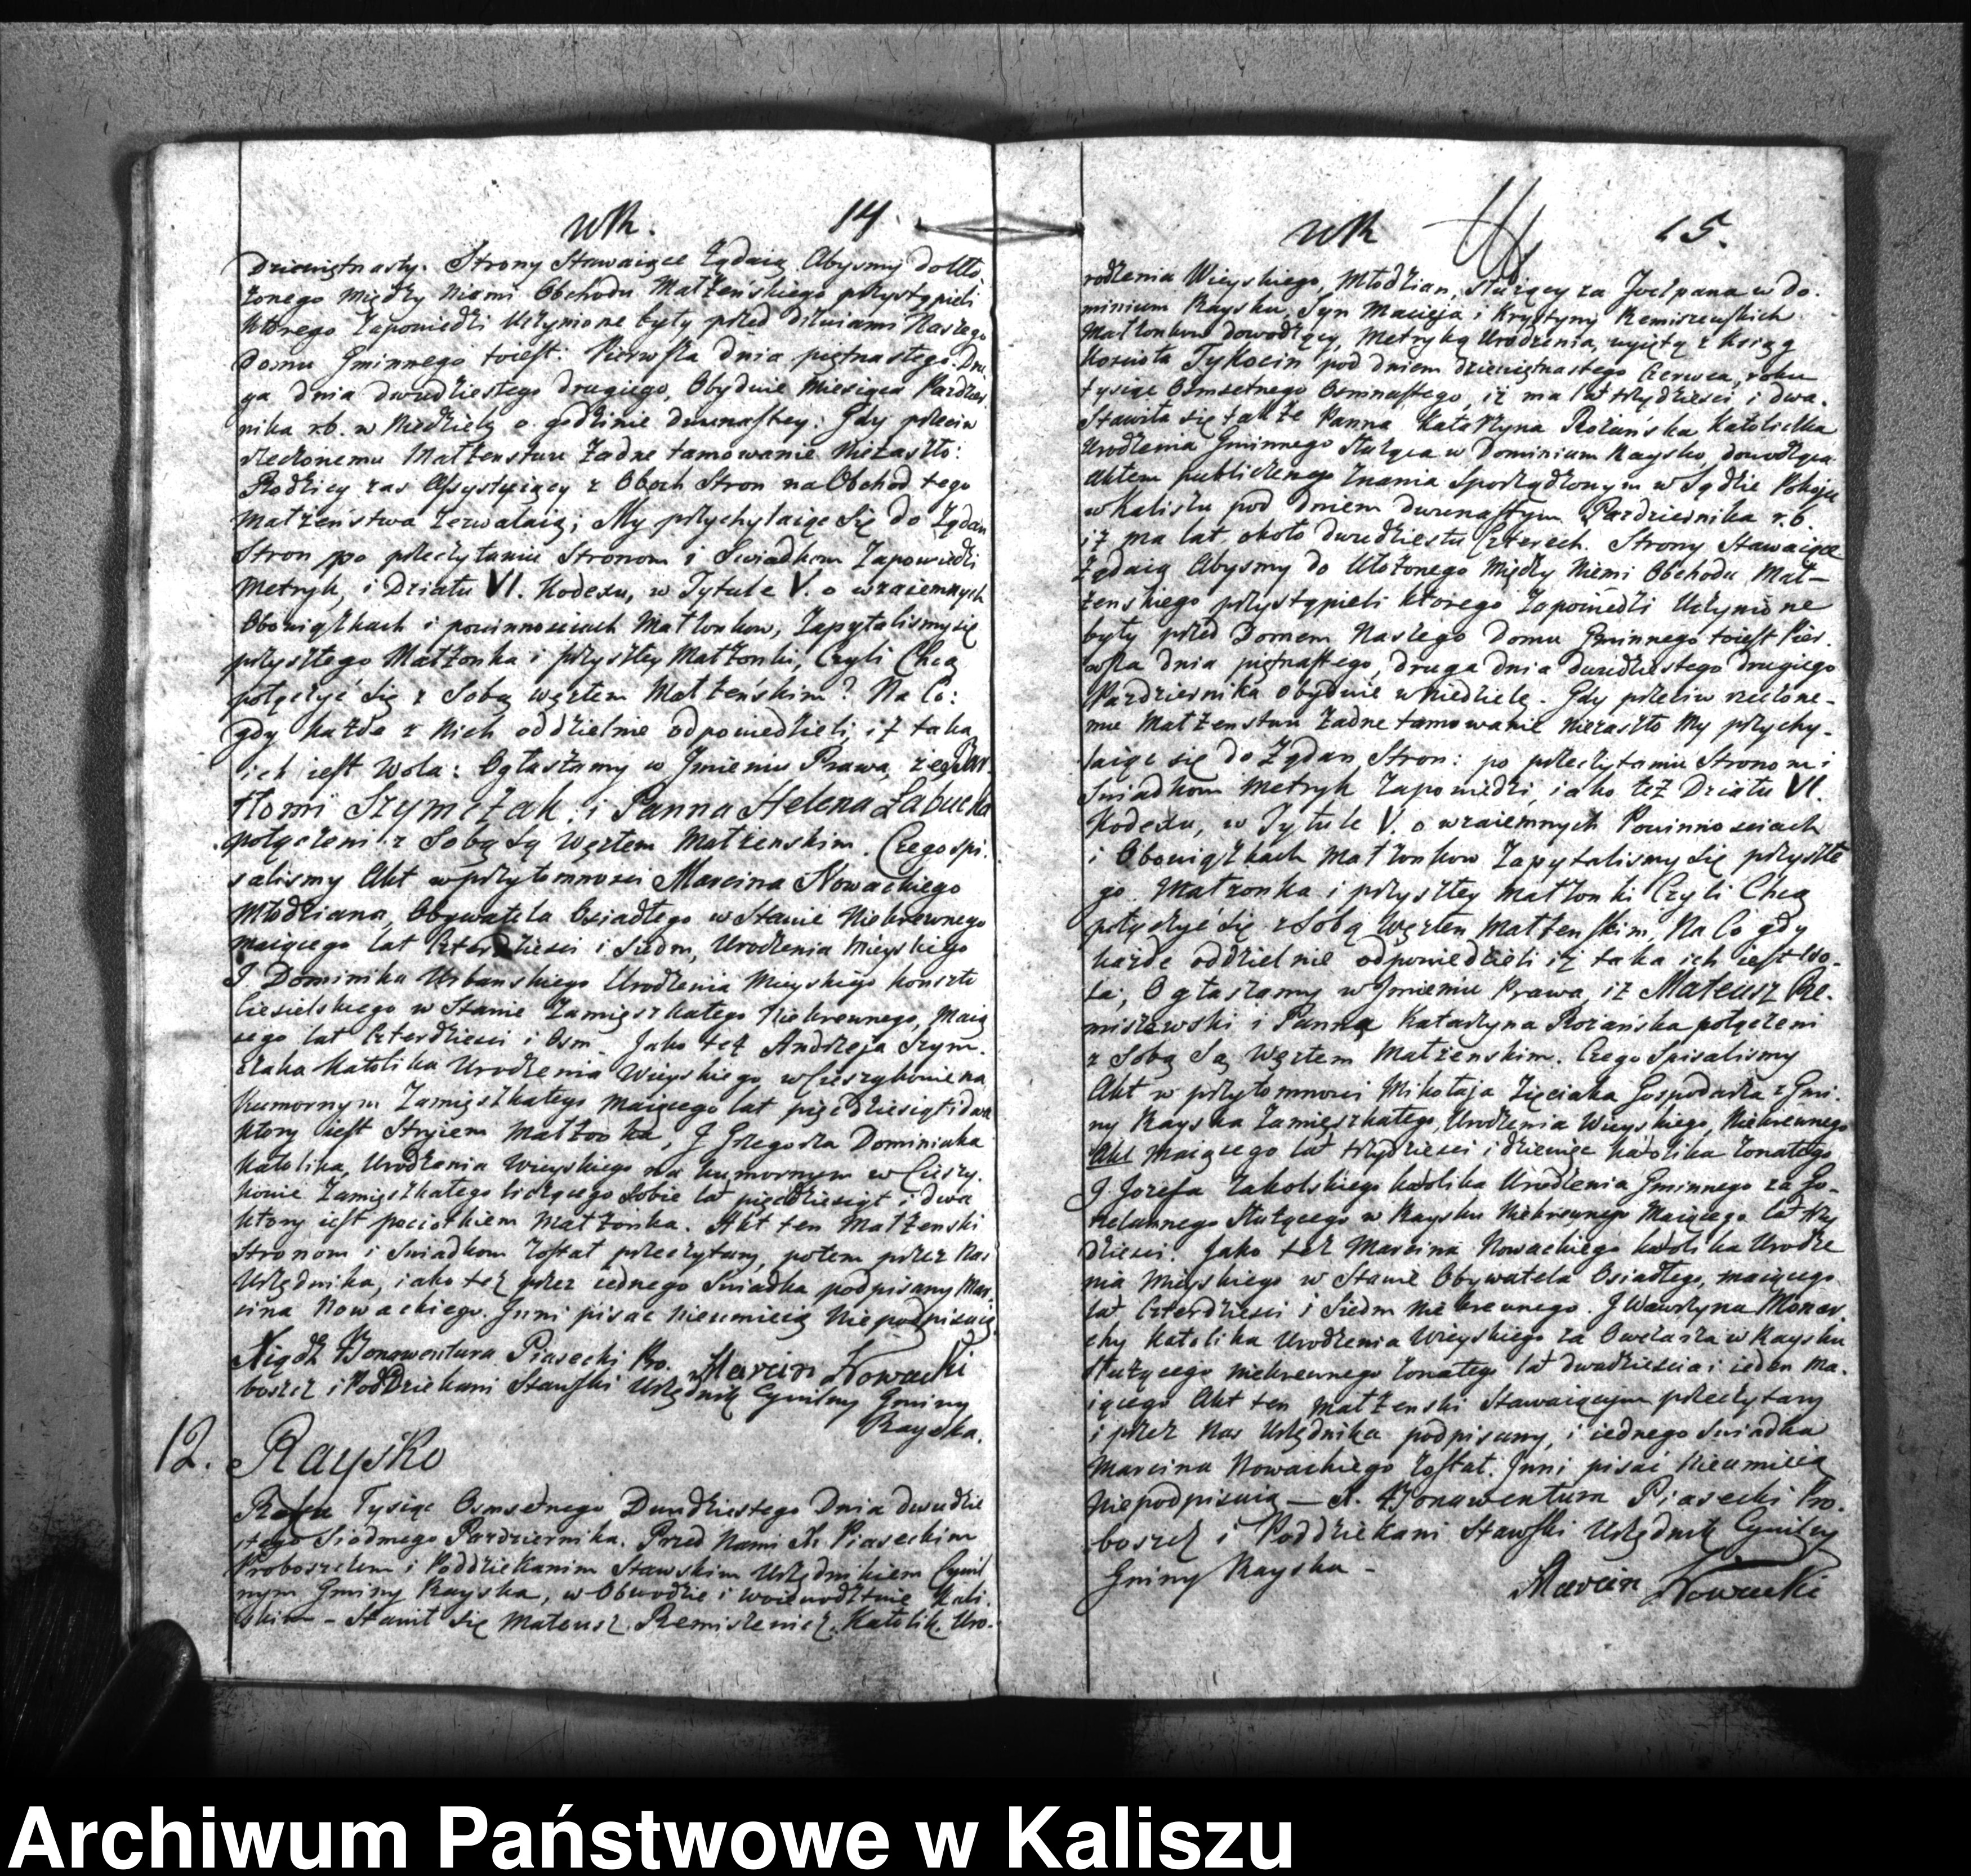 14.
dziewiętnasty. Strony Stawaiące Żądaią Abysmy do Uło
żonego między Niemi Obchodu Małżeńskiego przystąpieli
którego Zapowiedzi Uczynione były przed drzwiami Naszego
Domu Gminnego toiest. Pierwsza dnia piętnastego. Dru
ga dnia dwudziestego drugiego, Obydwie Miesiąca Pazdzier
nika r.b. w Niedzielę o godzinie dwunastey: Gdy przeciw
rzeczonemu Małżenstwu Żadne tamowanie Niezaszło:
Rodzicy zas Assystuiący z Oboch Stron na Obchod tego
Małżeństwa Zezwalaią; My przychylaiąc się do Żądan
Stron po przeczytaniu Stronom i Swiadkom Zapowiedzi
Metryk, i Działu VI. Kodexu, w Tytule V. o wzaiemnych
Obowiązkach i powinnosciach Małżonkow, Zapytalismy się
przyszłego Małżonka i przyszłey Małżonki, Czyli Chcą
połączyć się z Sobą węzłem Małżeńskim? Na Co:
gdy każde z Nich oddzielnie odpowiedzieli, iż taka
ich iest Wola: Ogłaszamy w Jmieniu Prawa, że Bar
tłomi Szymczak i Panna Helena Łabucka
połączeni z Sobą są Węzłem Małżenskim. Czego spi
salismy Akt w przytomnosci Marcina Nowackiego
Młodziana, Obywatela Osiadłego w Stawie Niekrewnego
maiącego lat Czterdziesci i Siedm, Urodzenia Mieyskiego
I Dominika Urbanskiego Urodzenia Mieyskiego konsztu
Ciesielskiego w Stawie Zamięszkałego Niekrewnego, Maią
cego lat Czterdziesci i Osm Jako też Andrzeja Szym.
czaka Katolika Urodzenia Wieyskiego w Cieszykowie na
kumornym Zamięszkałego maiącego lat pięcdziesiąt i dwa
ktory iest Stryiem Małżonka, J Grzegorza Dominiaka
Katolika, Urodzenia Wieyskiego na kumornym w Cieszy.
kowie Zamięszkałego liczącego Sobie lat pięcdziesiąt i dwa
ktory iest pociotkiem Małżonka. Akt ten Małżenski
Stronom i Swiadkom Został przeczytany, potem przez Nas
Urzędnika, iako też przez iednego Swiadka podpisany Mar
cina Nowackiego. Jnni pisac nieumieią Niepodpisuią
Xiądz Bonawentura Piasecki Pro. Marcin Nowacki
boszcz i Poddziekani Stawski Urzędnik Cywilny Gminy
Rayska.
12. Raysko
Roku Tysiąc Osmsetnego Dwudziestego Dnia dwudzie
stego Siodmego Pazdziernika. Przed Nami X. Piaseckim
Proboszczem i Poddziekanim Stawskim Urzędnikiem Cywil
nym Gminy Rayska, w Obwodzie i Woiewodztwie Kali.
skim – Stawił się Mateusz Remiszewicz, Katolik, Uro-
15.
rodzenia Wieyskiego, Młodzian, służący za w do.
minium Raysku, Syn Macieja i Krystyny Remiszewskich
Małżonkow dowodzący, Metryką Urodzenia, wyiętą z Ksiąg
Koscioła Tykocin pod dniem dziewiętnastego Czerwca, roku
tysiąc Osmsetnego Osmnastego, iż ma lat trzydziesci i dwa.
Stawiła się także Panna Katarzyna Rożańska Katoliczka
Urodzenia Gminnego Służąca w Dominium Raysko, dowodząca
Aktem publicznego Znania Sporządzonym w Sądzie Pokoju
w Kaliszu pod dniem dwunastym Pazdziernika r.b.
iż ma lat około dwudziestu Czterech. Strony Stawaiące
żądaią Abysmy do Ułożonego Między Niemi Obchodu Mał–
żenskiego przystąpieli ktorego Zapowiedzi Uczynione
były przed Domem Naszego Domu Gminnego toiest Pier.
wsza dnia piętnastego, druga dnia dwudziestego drugiego
Pazdziernika obydwie w Niedziele. Gdy przeciw rzeczone–
mu Małżenstwu Żadne tamowanie Niezaszło My przychy–
laiąc się do Żądan Stron: po przeczytaniu Stronom i
Swiadkom Metryk Zapowiedzi, iako też Działu VI.
Kodexu, w Tytule V. o wzaiemnych Powinnosciach
i Obowiązkach Małżonkow Zapytalismy się przyszłe
go Małżonka i przyszłey Małżonki Czyli Chcą
połączyć się z Sobą Węzłem Małżenskim, Na Co gdy
każde oddzielnie odpowiedzieli iż taka ich iest Wo–
la; Ogłaszamy w Jmieniu Prawa, iż Mateusz Re.
miszewski i Panna Katarzyna Rożańska połączeni
z Sobą Są Węzłem Małżenskim. Czego Spisalismy
Akt w przytomnosci Mikołaja Zięciaka Gospodarza z Gmi.
ny Rayska Zamięszkałego, Urodzenia Wieyskiego, Niekrewnego
Akt maiącego lat trzydziesci i dziewięc Katolika Żonatego
J Jozefa Zakolskiego Katolika Urodzenia Gminnego za Go–
rzelannego Służącego w Raysku Niekrewnego Maiącego lat trzy
dziesci. Jako też Marcina Nowackiego Katolika Urodze
nia Mieyskiego w Stawie Obywatela Osiadłego, maiącego
lat Czterdziesci i Siedm Niekrewnego. J Wawrzyna Monar
chy Katolika Urodzenia Wieyskiego za Owczarza w Raysku
służącego Niekrewnego Żonatego lat dwadziescia i ieden Ma.
iącego Akt ten Małżenski Stawaiącym przeczytany
i przez Nas Urzędnika podpisany, i iednego Swiadka
Marcina Nowackiego Został. Jnni pisać Nieumieią
Niepodpisuią — X. Bonawentura Piasecki Pro.
boszcz i Poddziekani Stawski Urzędnik Cywilny
Gminy Rayska –
Marcin Nowacki
Archiwum Państwowe w Kaliszu